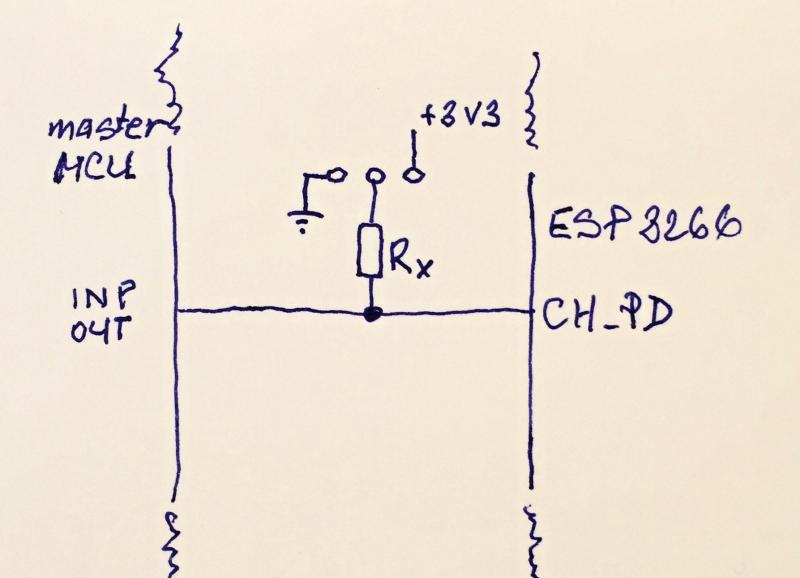 +3V3
master
MCU
ESP 8266
Rx
INP
OUT
CH_PD